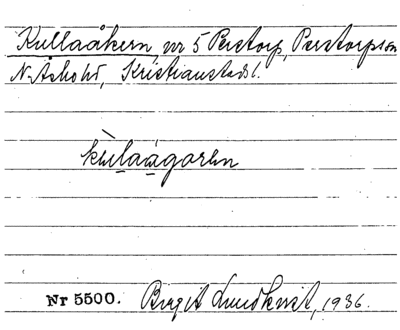 Kullaåkern nr 5 Perstorp, Perstorps sn
N. Åsbo hd, Kristianstads l.
kùlaågoren
Nr 5500. Birgit Lundkvist, 1936.